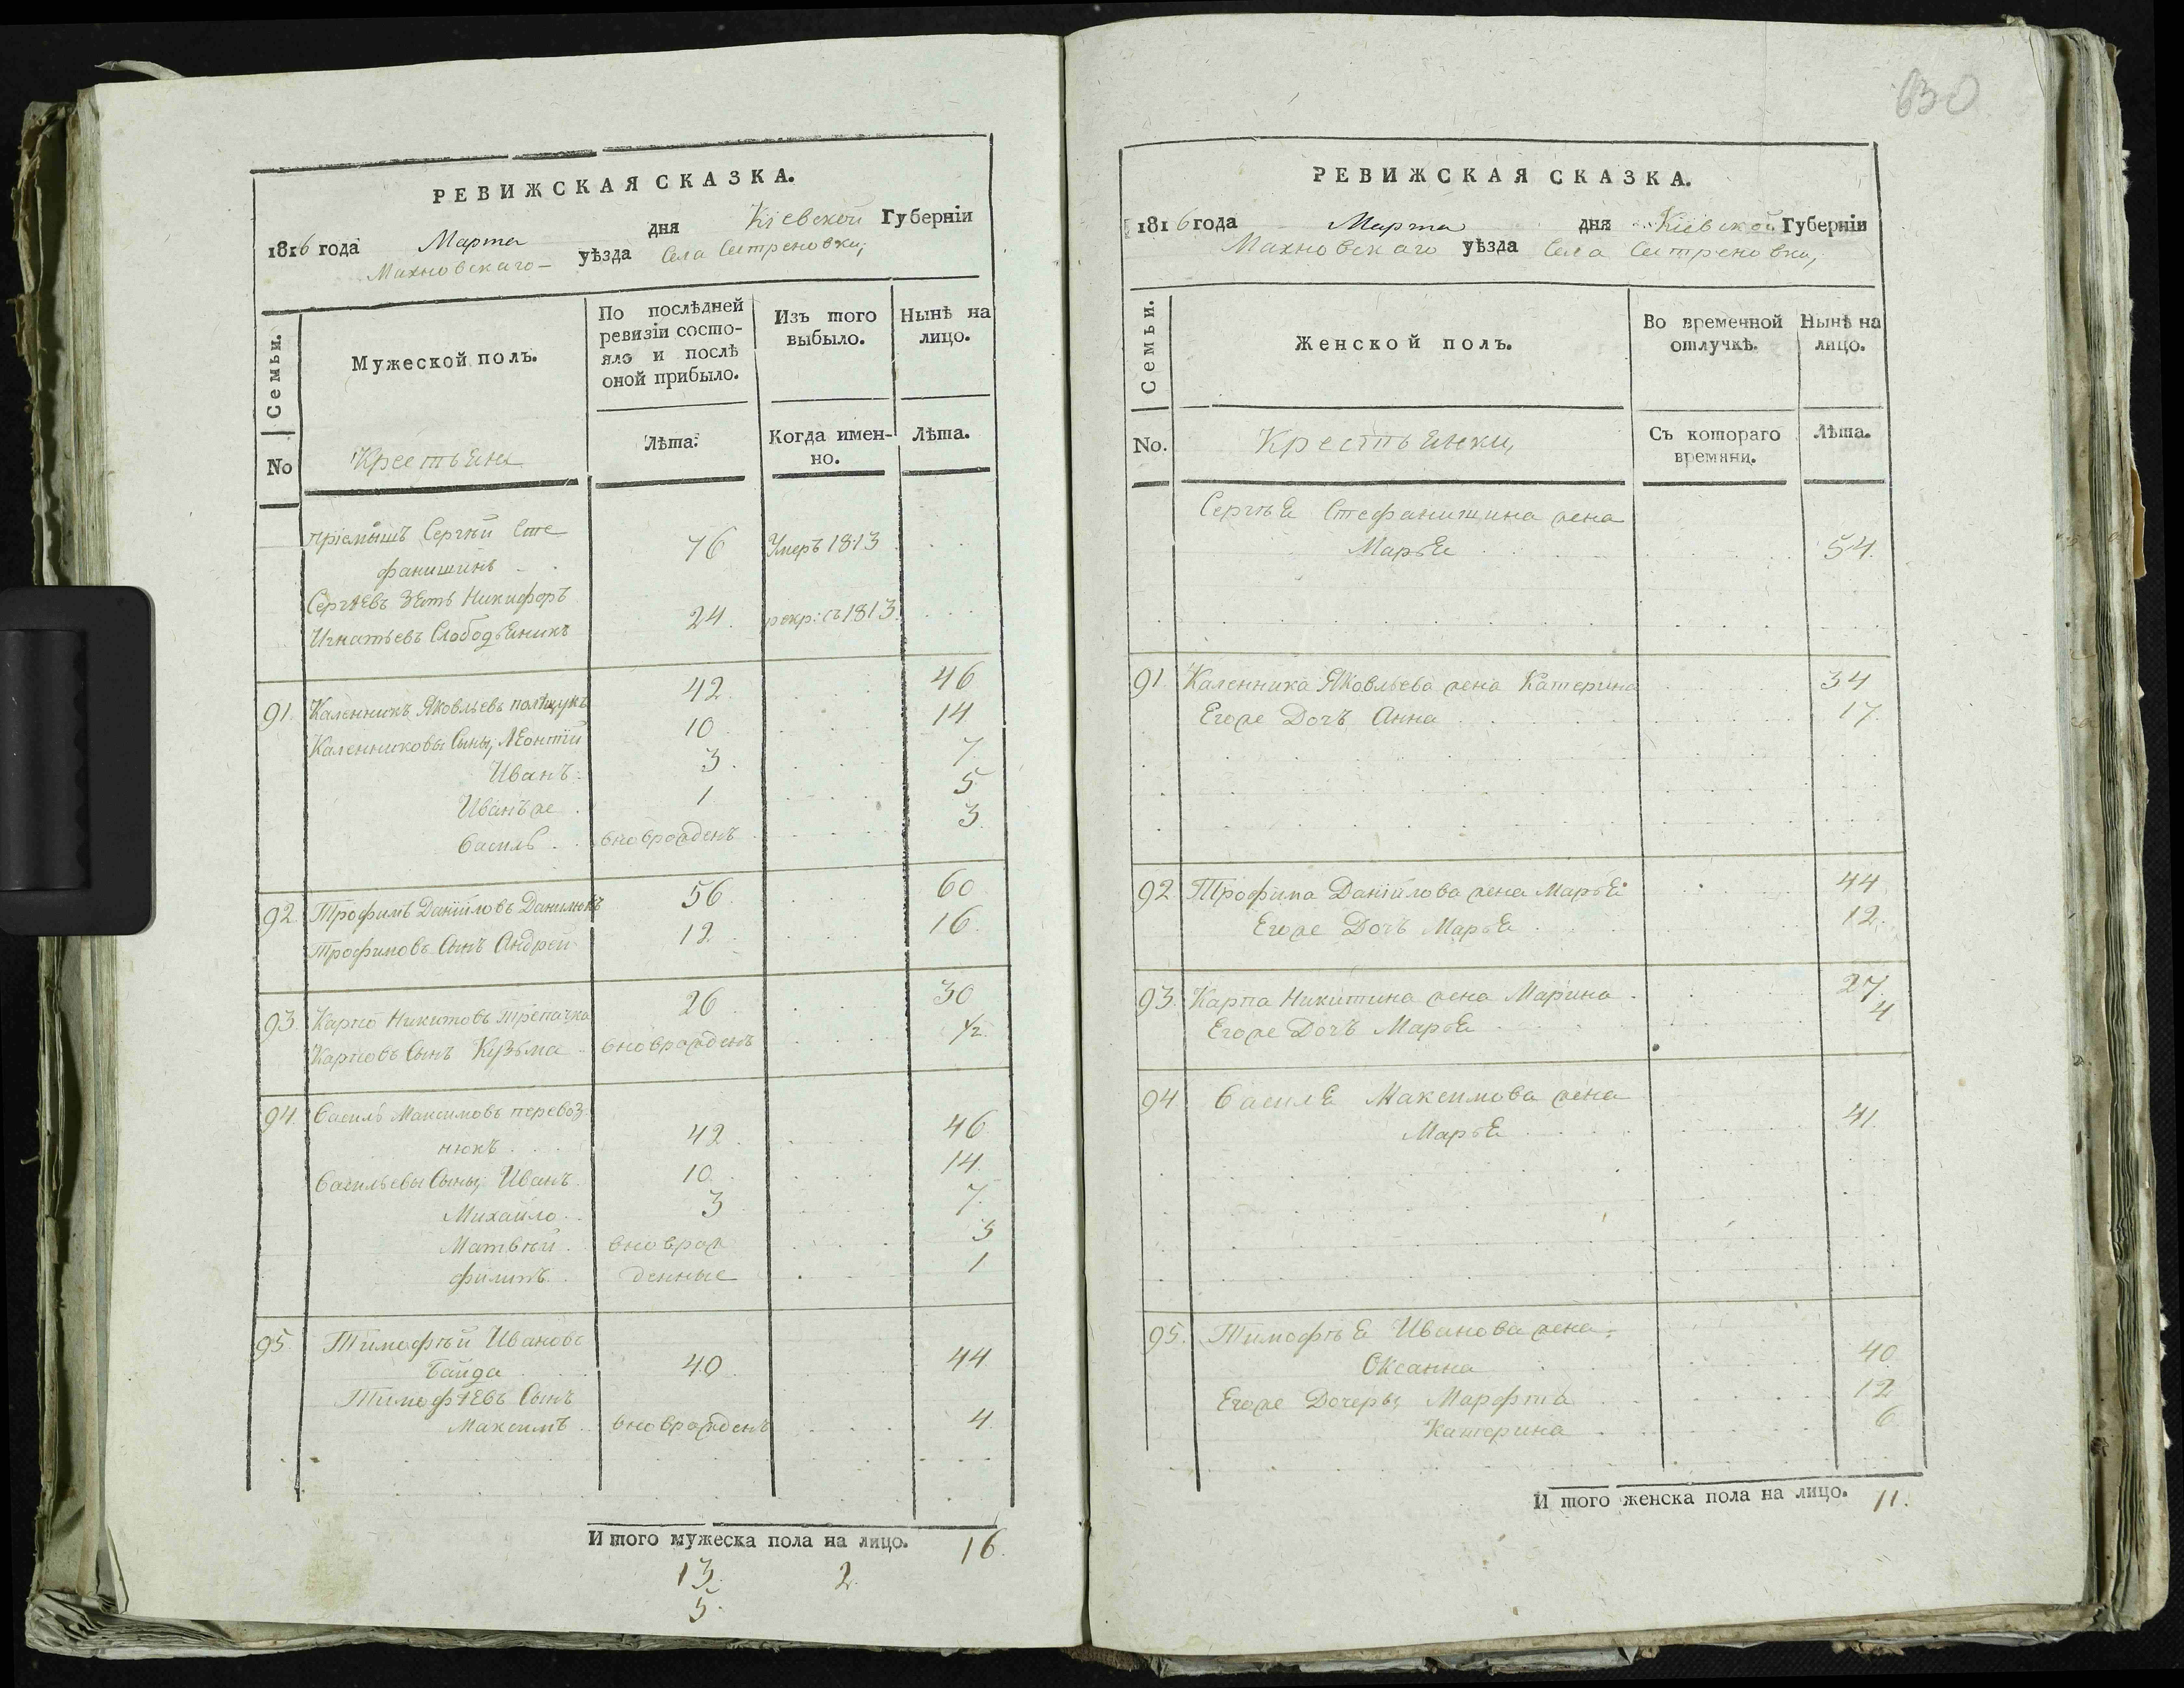 630
РЕВИЖСКАЯ СКАЗКА.
1816 года Марта дня Кіевской Губерніи
Махновскаго уѣзда Села Ситреновки,
Семьи.
Мужеской полъ.
По послѣдней ревизіи состо-
яло и послѣ оной прибыло.
Изъ того выбыло.
Нынѣ на лицо.
No
Крестьяне
Лѣта.
Когда имен-
но.
Лѣта.
пріемышъ Сергѣй Сте
фанишинъ 76 Умеръ 1813
Сергѣевъ Зять Никифоръ
Игнатьевъ Слободяникъ 24. рекр: съ 1813.
91. Каленникъ Яковльевъ полѣщукъ 42. 46
Каленниковы Сыны, Леонтій 10. 14
Иванъ 3. 7.
Иванъ же 1. 5.
Василь вноврожденъ 3.
92. Трофимъ Даніиловъ Данилюкъ 56. 60
Трофимовъ Сынъ Андрей 12. 16.
93. Карпо Никитовъ трепачка 26 30
Карповъ Сынъ Кузьма вноврожденъ 1/2.
94. Василь Максимовъ перевоз-
нюкъ 42. 46.
Васильевы Сыны, Иванъ 10. 14.
Михайло 3 7.
Матвѣй вноврож 3
филипъ денные 1
95. Тимофѣй Ивановъ
Байда 40 44
Тимофѣевъ Сынъ
Максимъ вноврожденъ 4.
Итого мужеска пола на лицо. 16.
13. 2.
5.
РЕВИЖСКАЯ СКАЗКА.
1816 года Марта дня Кіевской Губерніи
Махновскаго уѣзда Села Ситреновки,
Семьи.
Женской полъ.
Во временной отлучкѣ.
Нынѣ на лицо.
No.
Крестьянки,
Съ котораго
времяни.
Лѣта.
Сергѣя Стефанишина жена
Марья 54.
91. Каленника Яковльева жена Катерина 34
Егоже Дочъ Анна 17.
92. Трофима Даніилова жена Марья 44
Егоже Дочъ Марья 12.
93. Карпа Никитина жена Марина 27.
Егоже Дочъ Марья 4
94. Василя Максимова жена
Марья 41.
95. Тимофѣя Иванова жена
Оксанна 40
Егоже Дочеры, Марфта 12
Катерина 6
Итого женска пола на лицо. 11.